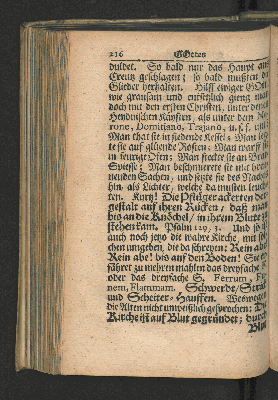 216 GOttes
duldet. So bald nur das Haupt ans
Creutz geschlagen; so bald musten die
Glieder herhalten. Hilff ewiger GOtt
wie grausam und entsetzlich gieng man
doch mit den ersten Christen, unter den
Heydnischen Käysern, als unter dem Ne-
rone, Domitiano, Trajano, u. s. f. um?
Man that sie in siedende Kessel; Man
te sie auf glüende Rosten; Man warff sie
in feurige Ofen; Man steckte sie an Brat-
Spiesse; Man beschmierete sie mit
neyden Sachen, und setzte sie des Nachts
hin, als Lichter, welche da musten leuch-
ten. Kurtz! Die Pflüger ackerten der-
gestalt auf ihren Rücken, daß man
bis an die Knöchel, in ihrem Blute zu
stehen kam. Psalm 129, 3. Und so ist
auch noch jetzo die wahre Kirche, mit sol-
chen umgeben, die da schreyen: Rein abe,
Rein abe! bis auf den Boden! Sie er-
fähret zu mehrern mahlen das dreyfache F.
oder das dreyfache S. Ferrum, Fu-
nem, Flammam. Schwerdt, Strick
und Scheiter-Hauffen. Weswegen
die Alten nicht unweißlich gesprochen: Die
Kirche ist auf Blut gegründet; durch
Blut